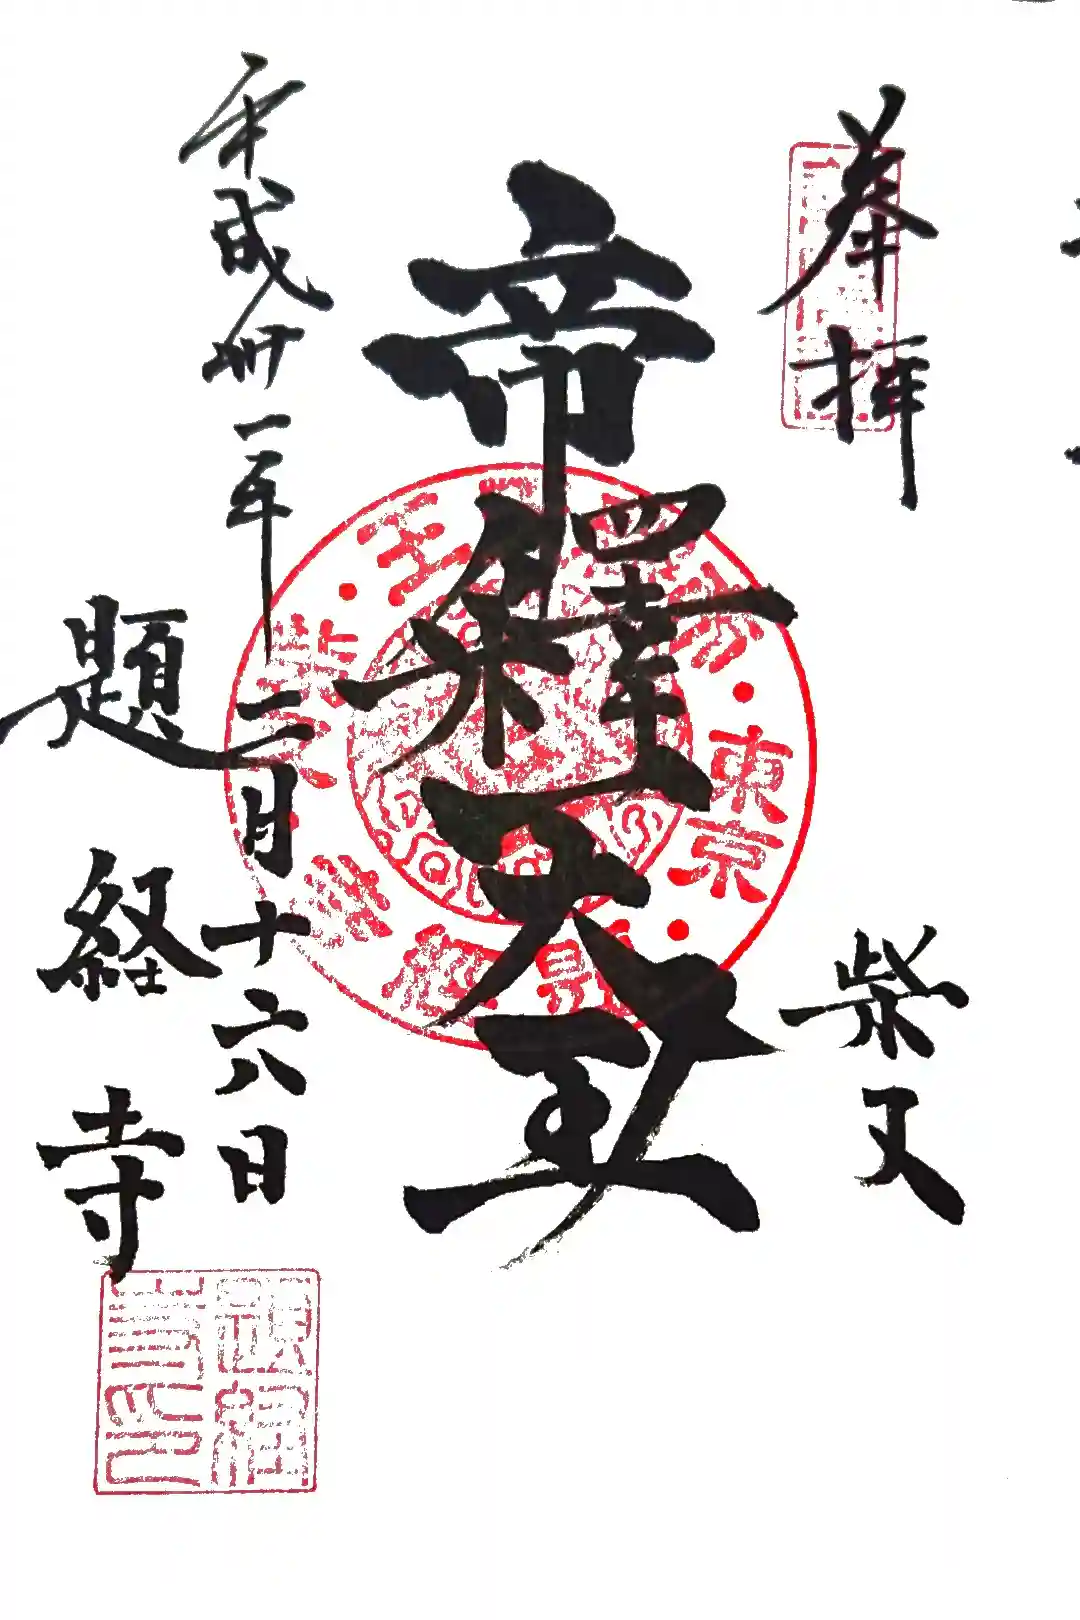 奉拝
柴又
帝釋天王
平成丗一年二月十六日
題経寺
東京